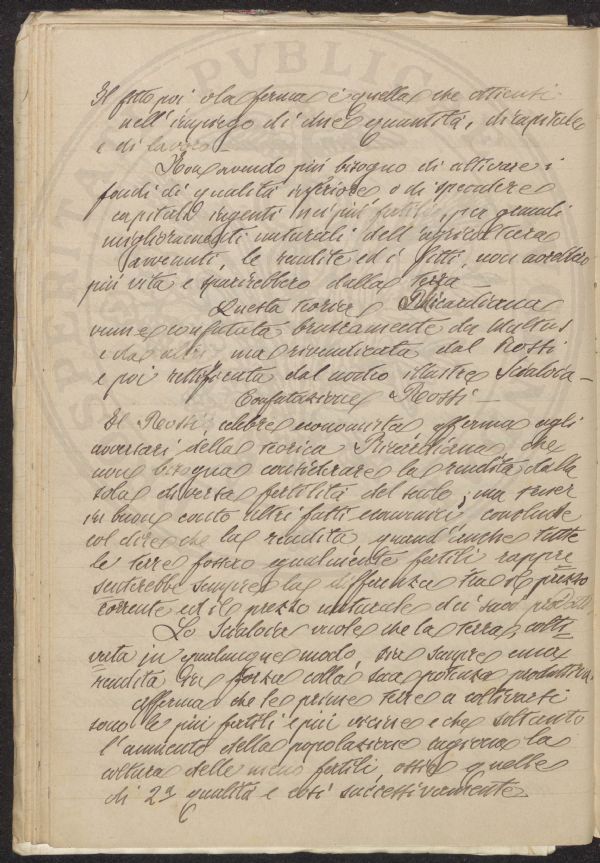 Il fitto poi o la ferma è quella che ottiensi
nell'impiego di due quantità, di capitale
e di lavoro –
Non avendo più bisogno di coltivare i
fondi di qualità inferiore o di spendere
capitali ingenti nei più fertili, per grandi
miglioramenti naturali dell'agricoltura
avvenuti, le rendite ed i fitti non avrebbero
più vita e sparirebbero dalla terra –
Questa teorica Ricardiana
venne confutata bruscamente da Malthus
e da altri, ma rivendicata dal Rossi
e poi rettificata dal nostro illustre Scialoia –
Confutazione Rossi –
Il Rossi, celebre economista, afferma agli
avversari della teorica Ricardiana che
non bisogna considerare la rendita dalla
sola diversa fertilità del suolo; ma tener
in buon conto altri fatti economici, conclude
col dire che la rendita quand'anche tutte
le terre fossero egualmente fertili rappre
senterebbe sempre la differenza tra il prezzo
corrente ed il prezzo naturale dei suoi prodotti
Lo Scialoia vuole che la terra, colti-
vata in qualunque modo, dia sempre una
rendita in forza della sua potenza produttiva.
afferma che le prime terre a coltivarsi
sono le più fertili e più vicine e che soltanto
l'aumento della popolazione cagiona la
coltura delle meno fertili, ossia quelle
di 2ª qualità e così successivamente